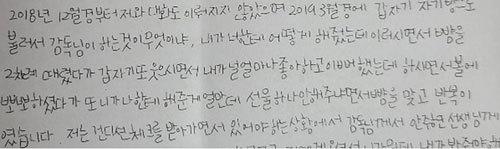 2018년 12월경부터 저와 대화도 이루어지 않았으며 2019 3월경에 갑자기 자기방으로
불러서 감독님이 하는것이 무엇이냐, 내가 너한테 어떻게 해줬는데 이러시면서 뺨을
2차례 때렸다가 갑자기 또웃으면서 내가 널 얼마나 좋아하고 이뻐했는데 하시면서 볼에
뽀뽀하셨다가 또 니가 나한테 해준게 얼만데 선물하나 안해주냐면서 뺨을 맞고 반복이
였습니다. 저는 컨디션체크를 받아가면서 있어야하는상황에서 감독님께서 안주현 선생님께